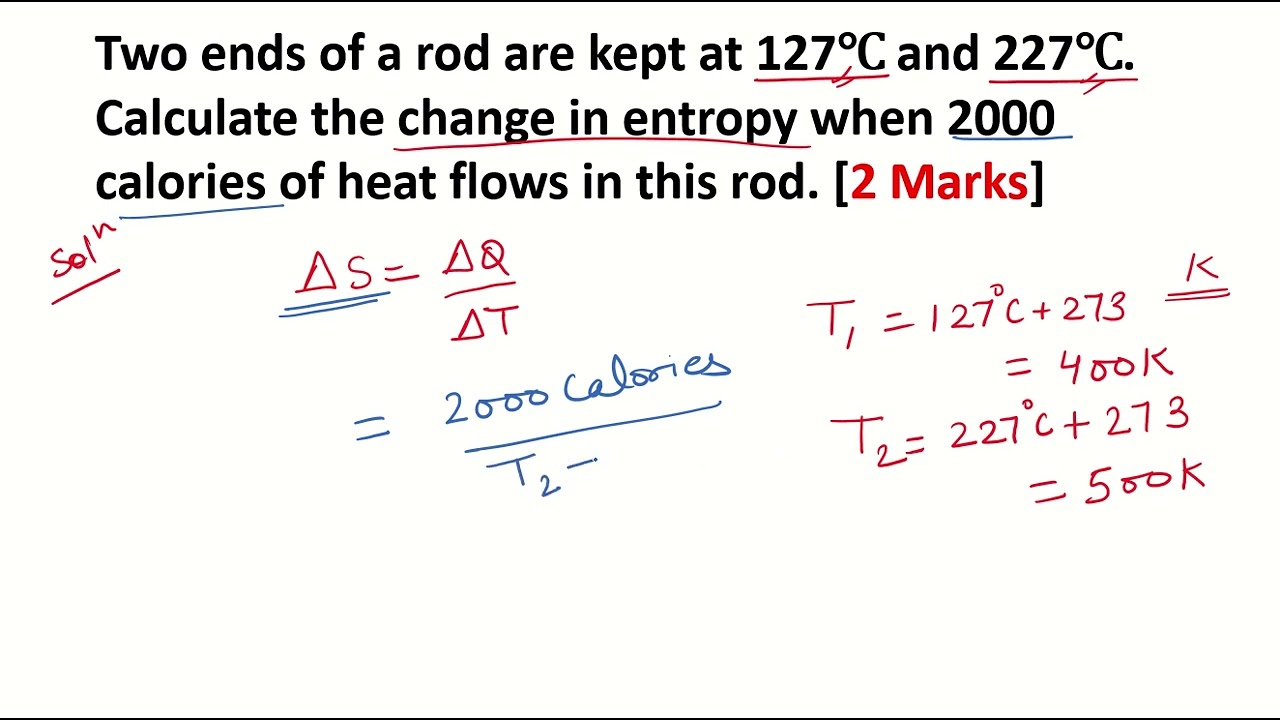 Two ends of a rod are kept at 127°C and 227°C.
Calculate the change in entropy when 2000
calories of heat flows in this rod. [2 Marks]
Solⁿ
ΔS = ΔQ
ΔT
= 2000 Calories
T₂ -
K
T₁ = 127°C + 273
= 400K
T₂ = 227°C + 273
= 500K